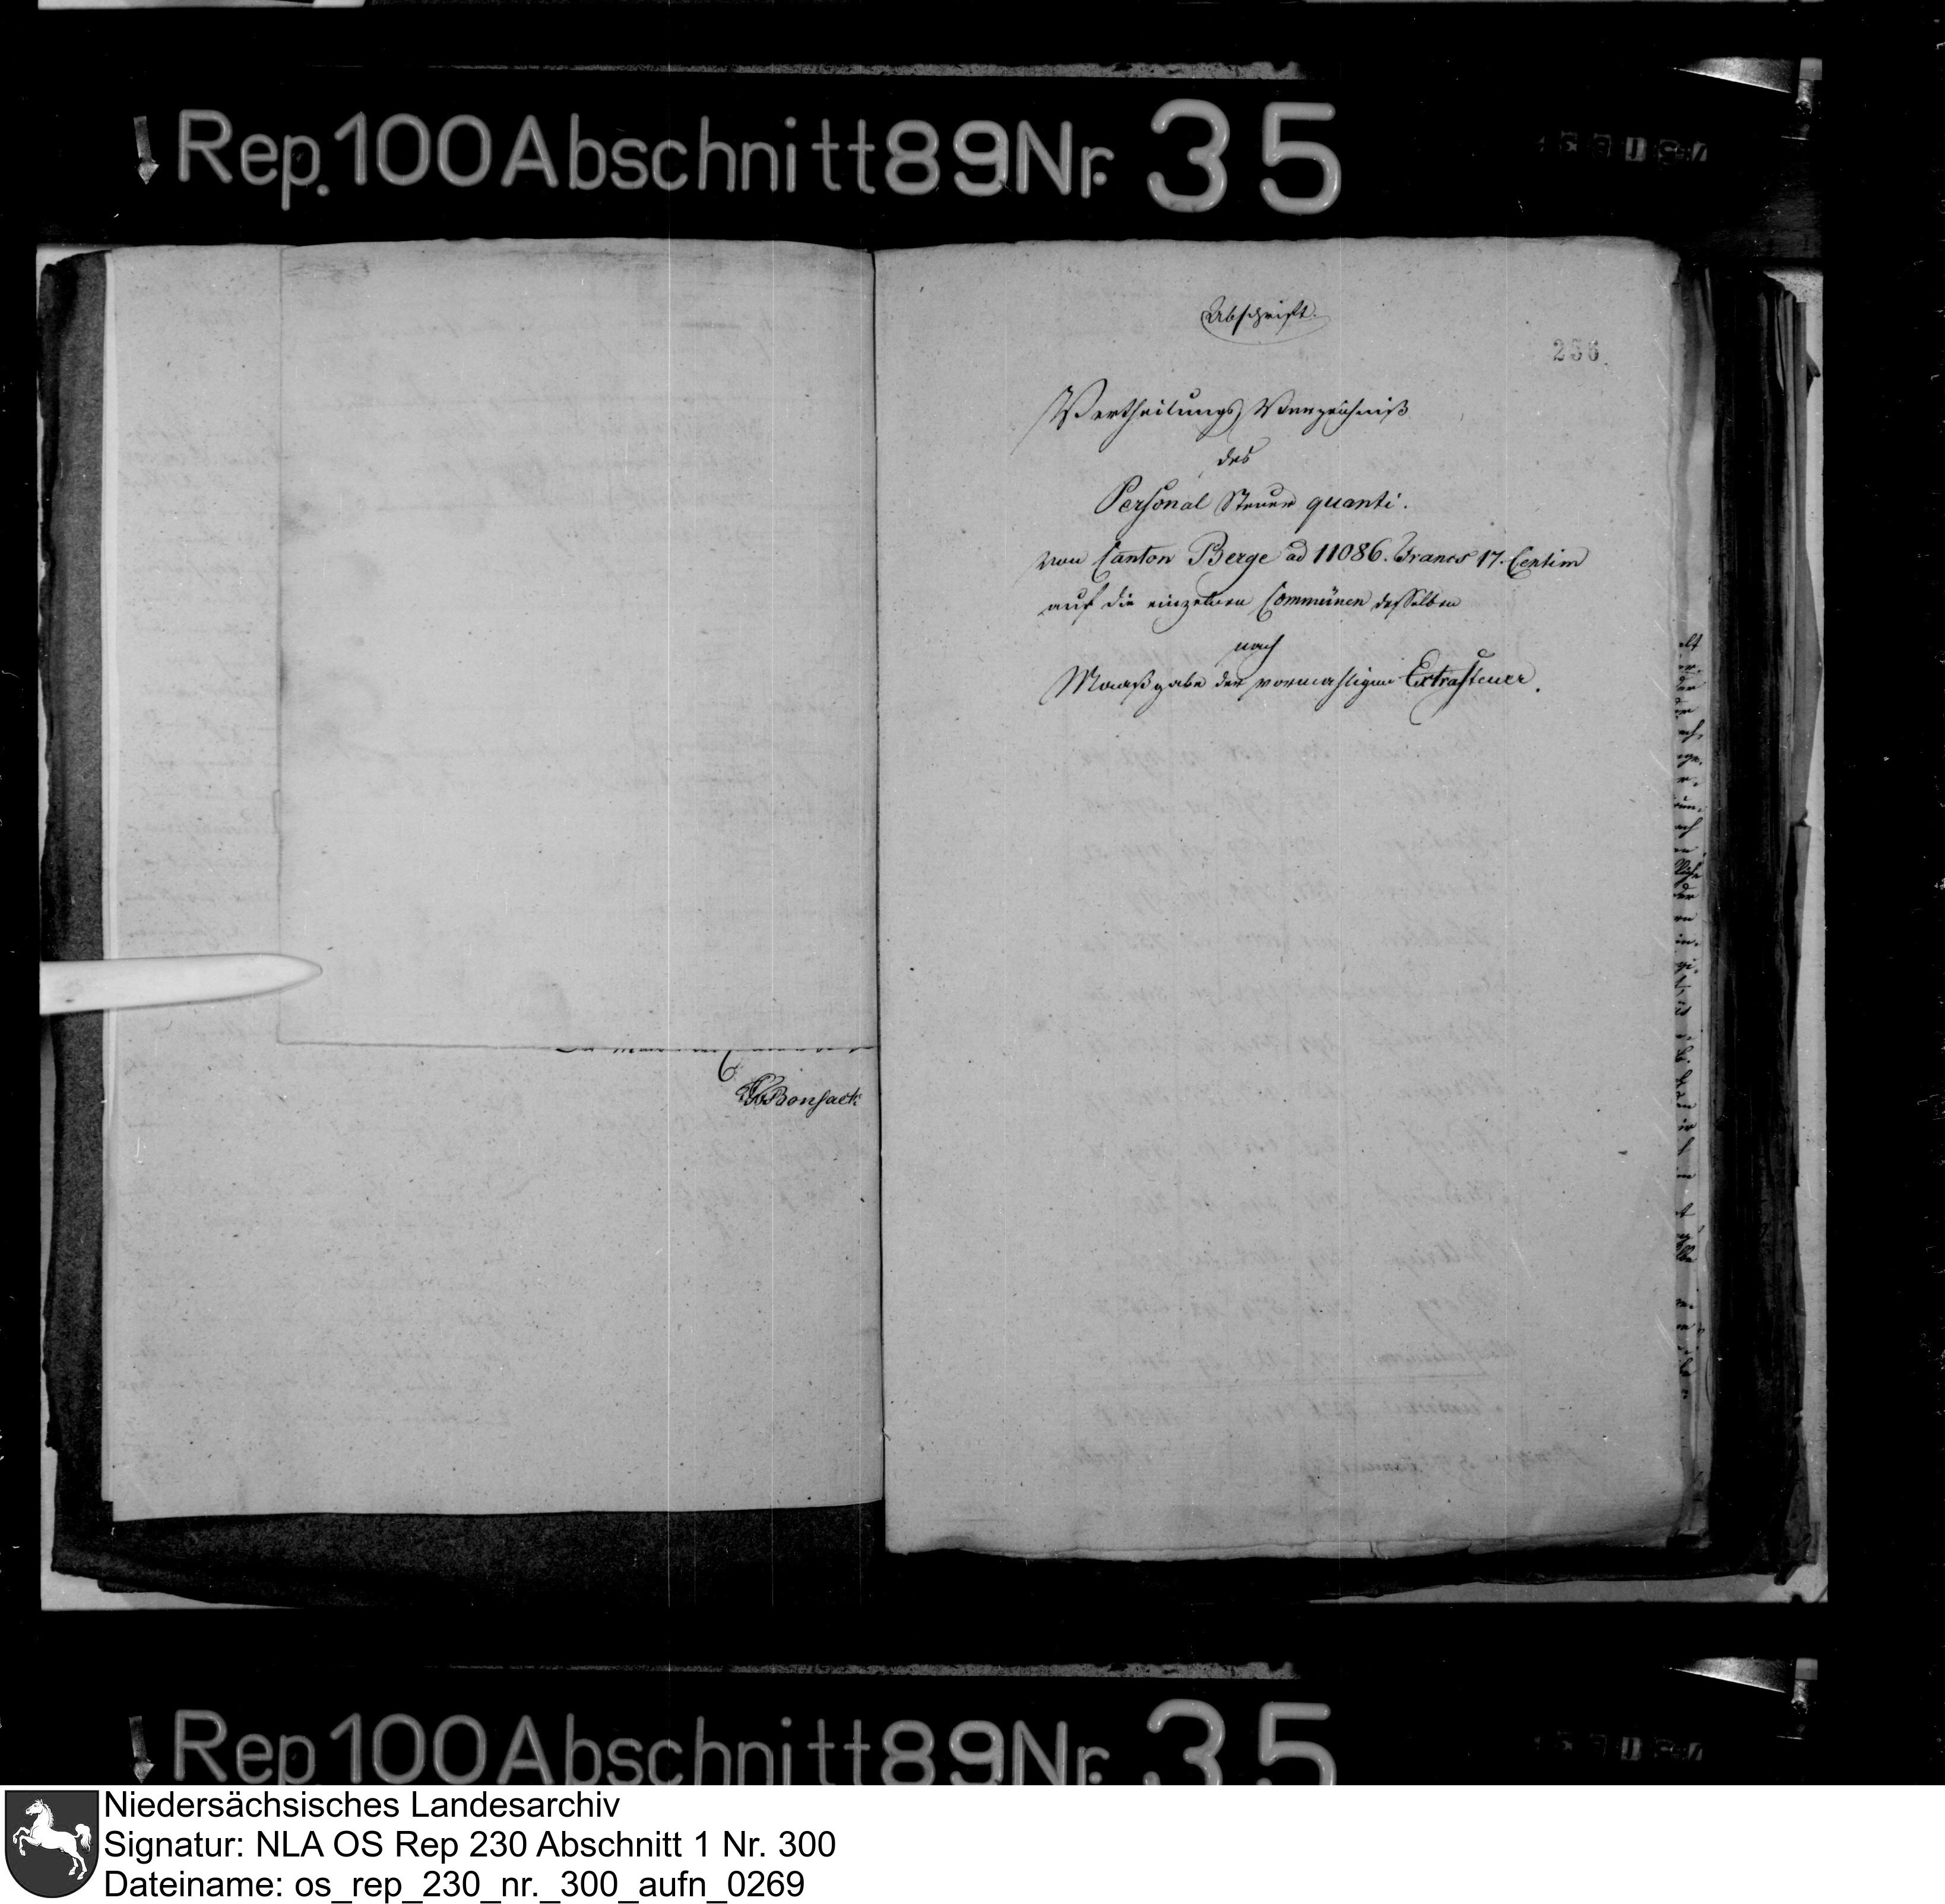 Rep. 100 Abschnitt 89 Nr. 35
Bonsack
Abschrift.
256.
Vertheilungs Verzeichniß
des
Personal Steuer quanti.
von Canton Berge ad 11086. Francs 17. Centim
auf die einzelnen Communen desselben
nach
Maaßgabe der vormahligen Extrasteuer.
Rep. 100 Abschnitt 89 Nr. 35
Niedersächsisches Landesarchiv
Signatur: NLA OS Rep 230 Abschnitt 1 Nr. 300
Dateiname: os_rep_230_nr._300_aufn_0269